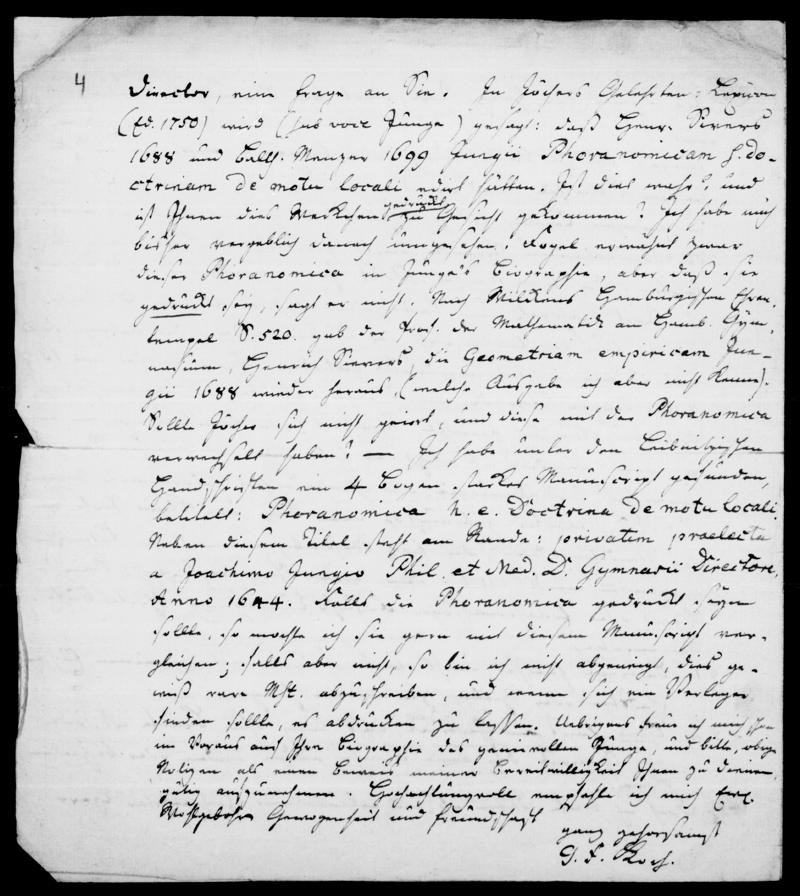 4
Director, eine Frage an Sie. In Jöchers Gelehrten-Lexicon
(Ed. 1750) wird (sub voce Junge) gesagt: daß Henr. Sivers
1688 und Balth. Menzer 1699 Jungii Phoranomicam s. do-
ctrinam de motu locali edirt hätten. Ist dies wahr? und
ist Ihnen dies Werkchen gedruckt zu Gesicht gekommen? Ich habe mich
bisher vergeblich danach umgesehen. Fogel erwähnt zwar
dieser Phoranomica in Junge's Biographie, aber daß sie
gedruckt sey, sagt er nicht. Nach Wilckens Hamburgischen Ehren-
tempel S. 520. gab der Prof. der Mathematik am Hamb. Gym-
nasium, Heinrich Sievers, die Geometriam empiricam Jun-
gii 1688 wieder heraus, (welche Ausgabe ich aber nicht kenne).
Sollte Jöcher sich nicht geirrt, und diese mit der Phoranomica
verwechselt haben? — Ich habe unter den Leibnitzischen
Handschriften ein 4 Bogen starkes Manuscript gefunden,
betitelt: Phoranomica h. e. Doctrina de motu locali.
Neben diesem Titel steht am Rande: privatim praelecta
a Joachimo Jungio Phil. et Med. D. Gymnasii Directore,
Anno 1644. Falls die Phoranomica gedruckt seyn
sollte, so möchte ich sie gern mit diesem Manuscript ver-
gleichen; falls aber nicht, so bin ich nicht abgeneigt, dies ge-
wiß rare Mst. abzuschreiben, und wenn sich ein Verleger
finden sollte, es abdrucken zu lassen. Uebrigens freue ich mich schon
im Voraus auf Ihre Biographie des genievollen Junge, und bitte, obige
Notizen als einen Beweis meiner Bereitwilligkeit Ihnen zu dienen,
gütig aufzunehmen. Hochachtungsvoll empfehle ich mich Ew.
Wohlgebohrn Gewogenheit und Freundschaft
ganz gehorsamst
G. F. Koch.